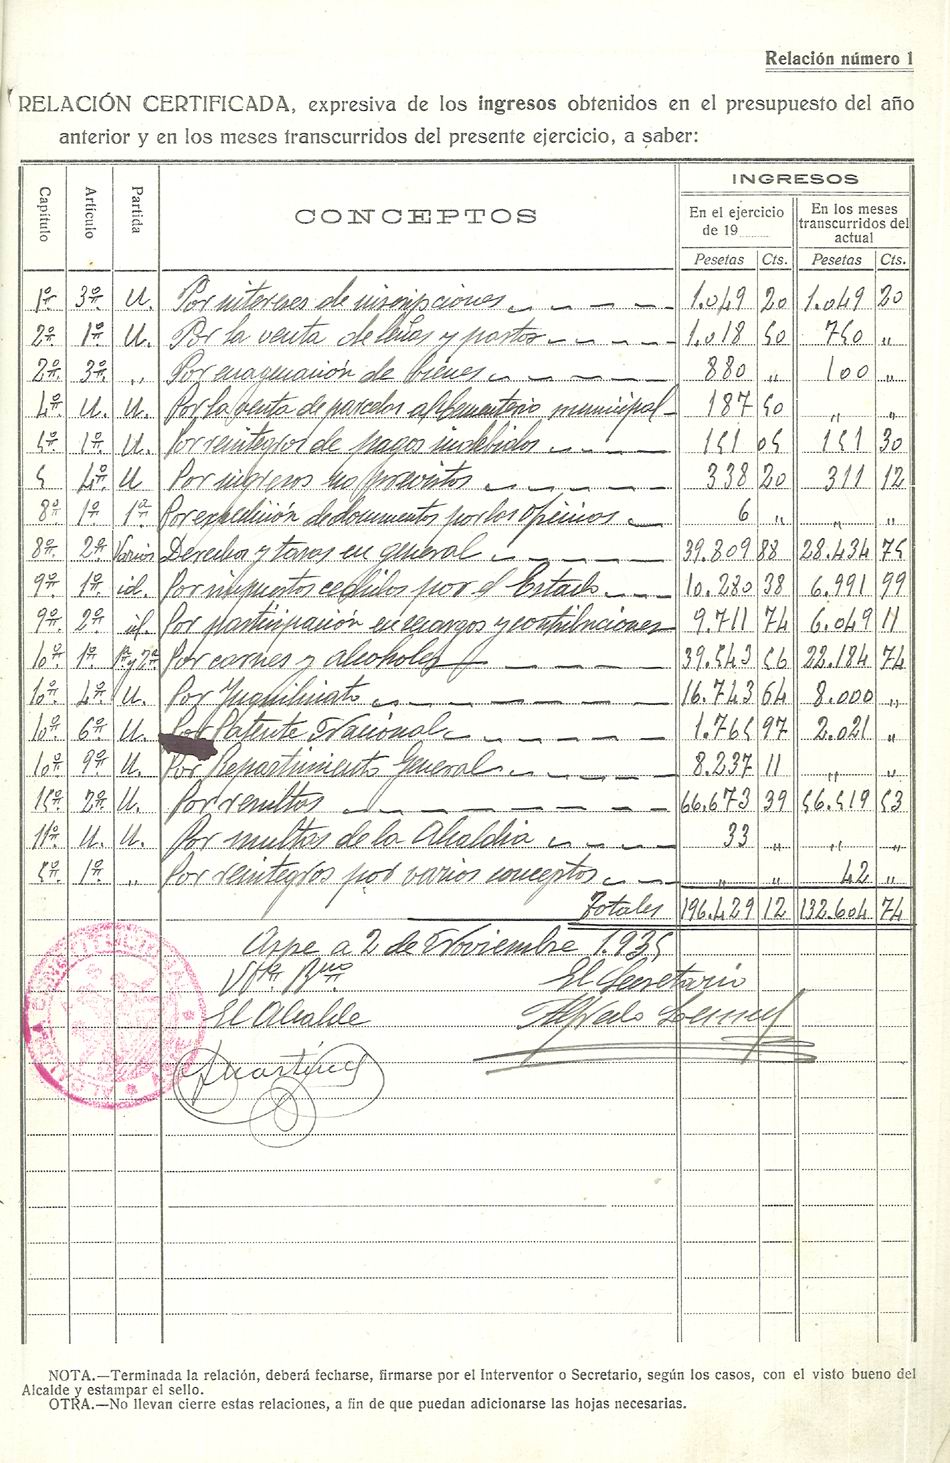 Relación número 1
RELACIÓN CERTIFICADA, expresiva de los ingresos obtenidos en el presupuesto del año
anterior y en los meses transcurridos del presente ejercicio, a saber:
Capítulo Artículo Partida CONCEPTOS INGRESOS
En el ejercicio de 19 En los meses transcurridos del actual
Pesetas Cts. Pesetas Cts.
1º 3º U. Por intereses de inscripciones 1.049 20 1.049 20
2º 1º U. Por la venta de leñas y pastos 1.018 50 750 „
2º 3º „ Por enagenación de bienes 880 „ 100 „
4º U. U. Por la venta de parcelas al Cementerio municipal 187 50 „ „
5º 1º U. Por reintegros de pagos indebidos 151 05 151 30
5 4º U Por ingresos no previstos 338 20 311 12
8º 1º 1ª Por expedición de documentos por las oficinas 6 „ „ „
8º 2º Varios Derechos y tasas en general 39.809 88 28.434 75
9º 1º id. Por impuestos cedidos por el Estado 10.280 38 6.991 99
9º 2º id. Por participación en recargos y contribuciones 9.711 74 6.049 11
10º 1º 1ª y 2ª Por carnes y alcoholes 39.543 56 22.184 74
10º 4º U. Por Inquilinato 16.743 64 8.000 „
10º 6º U. Por Patente Nacional 1.765 97 2.021 „
10º 9º U. Por Repartimiento General 8.237 11 „ „
15º 2º U. Por resultas 66.673 39 56.519 53
11º U. U. Por multas de la Alcaldia 33 „ „ „
5º 1º „ Por reintegros por varios conceptos „ „ 42 „
Totales 196.429 12 132.604 74
Aspe a 2 de Noviembre 1.935
Vtº Bno El Secretario
El Alcalde Alfredo
NOTA.—Terminada la relación, deberá fecharse, firmarse por el Interventor o Secretario, según los casos, con el visto bueno del
Alcalde y estampar el sello.
OTRA.—No llevan cierre estas relaciones, a fin de que puedan adicionarse las hojas necesarias.